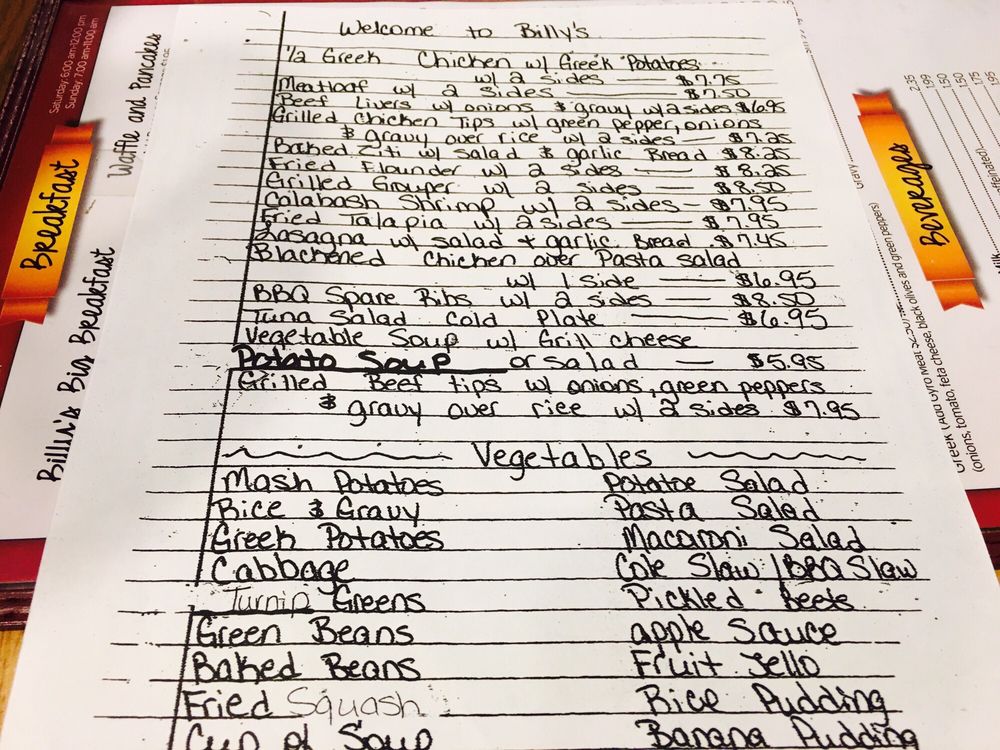 Welcome to Billy's
1/2 Greek Chicken w/ Greek Potatoes
w/ 2 sides $7.75
Meatloaf w/ 2 sides $7.50
Beef Livers w/ onions & gravy w/2 sides $6.95
Grilled Chicken Tips w/ green pepper, onions
& gravy over rice w/ 2 sides $7.25
Baked Ziti w/ Salad & garlic Bread $8.25
Fried Flounder w/ 2 sides $8.25
Grilled Grouper w/ 2 sides $8.50
Calabash Shrimp w/ 2 sides $7.95
Fried Talapia w/ 2 sides $7.95
Lasagna w/ salad + garlic Bread $7.45
Blackened Chicken over Pasta salad
w/ 1 side $6.95
BBQ Spare Ribs w/ 2 sides $8.50
Tuna Salad Cold Plate $6.95
Vegetable Soup w/ Grill cheese
Potato Soup or salad $5.95
Grilled Beef tips w/ onions, green peppers
& gravy over rice w/ 2 sides $7.95
Vegetables
Mash Potatoes
Rice & Gravy
Greek Potatoes
Cabbage
Turnip Greens
Green Beans
Baked Beans
Fried Squash
Cup of Soup
Potatoe Salad
Pasta Salad
Macaroni Salad
Cole Slaw / BBQ Slaw
Pickled Beets
apple Sauce
Fruit Jello
Rice Pudding
Banana Pudding
Saturday: 6:00 am-12:00 pm
Sunday: 7:00 am-11:00 am
Breakfast
Waffle and Pancakes
Billy's Big Breakfast
Beverages
2.35
1.99
1.50
1.50
1.75
1.95
gravy
(onions, tomato, feta cheese, black olives and green peppers)